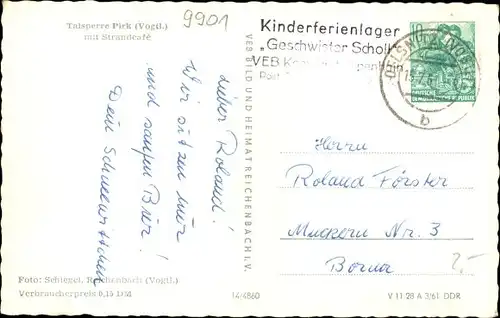 Talsperre Pirk (Vogtl.)
mit Strandcafé
9901
Lieber Roland!
Wir sitzen hier
und saufen Bier!
Dein Schneewittchen
Foto: Schlegel, Reichenbach (Vogtl.)
Verbraucherpreis 0,15 DM
VEB BILD UND HEIMAT REICHENBACH I. V.
14/4860
Kinderferienlager
„Geschwister Scholl"
VEB
Post
OELSNITZ (VOGTL)
b
10
DEUTSCHE
DEMOKRATISCHE REPUBLIK
Herrn
Roland Förster
Muckern Nr. 3
Borna
2,-
V 11 28 A 3/61 DDR